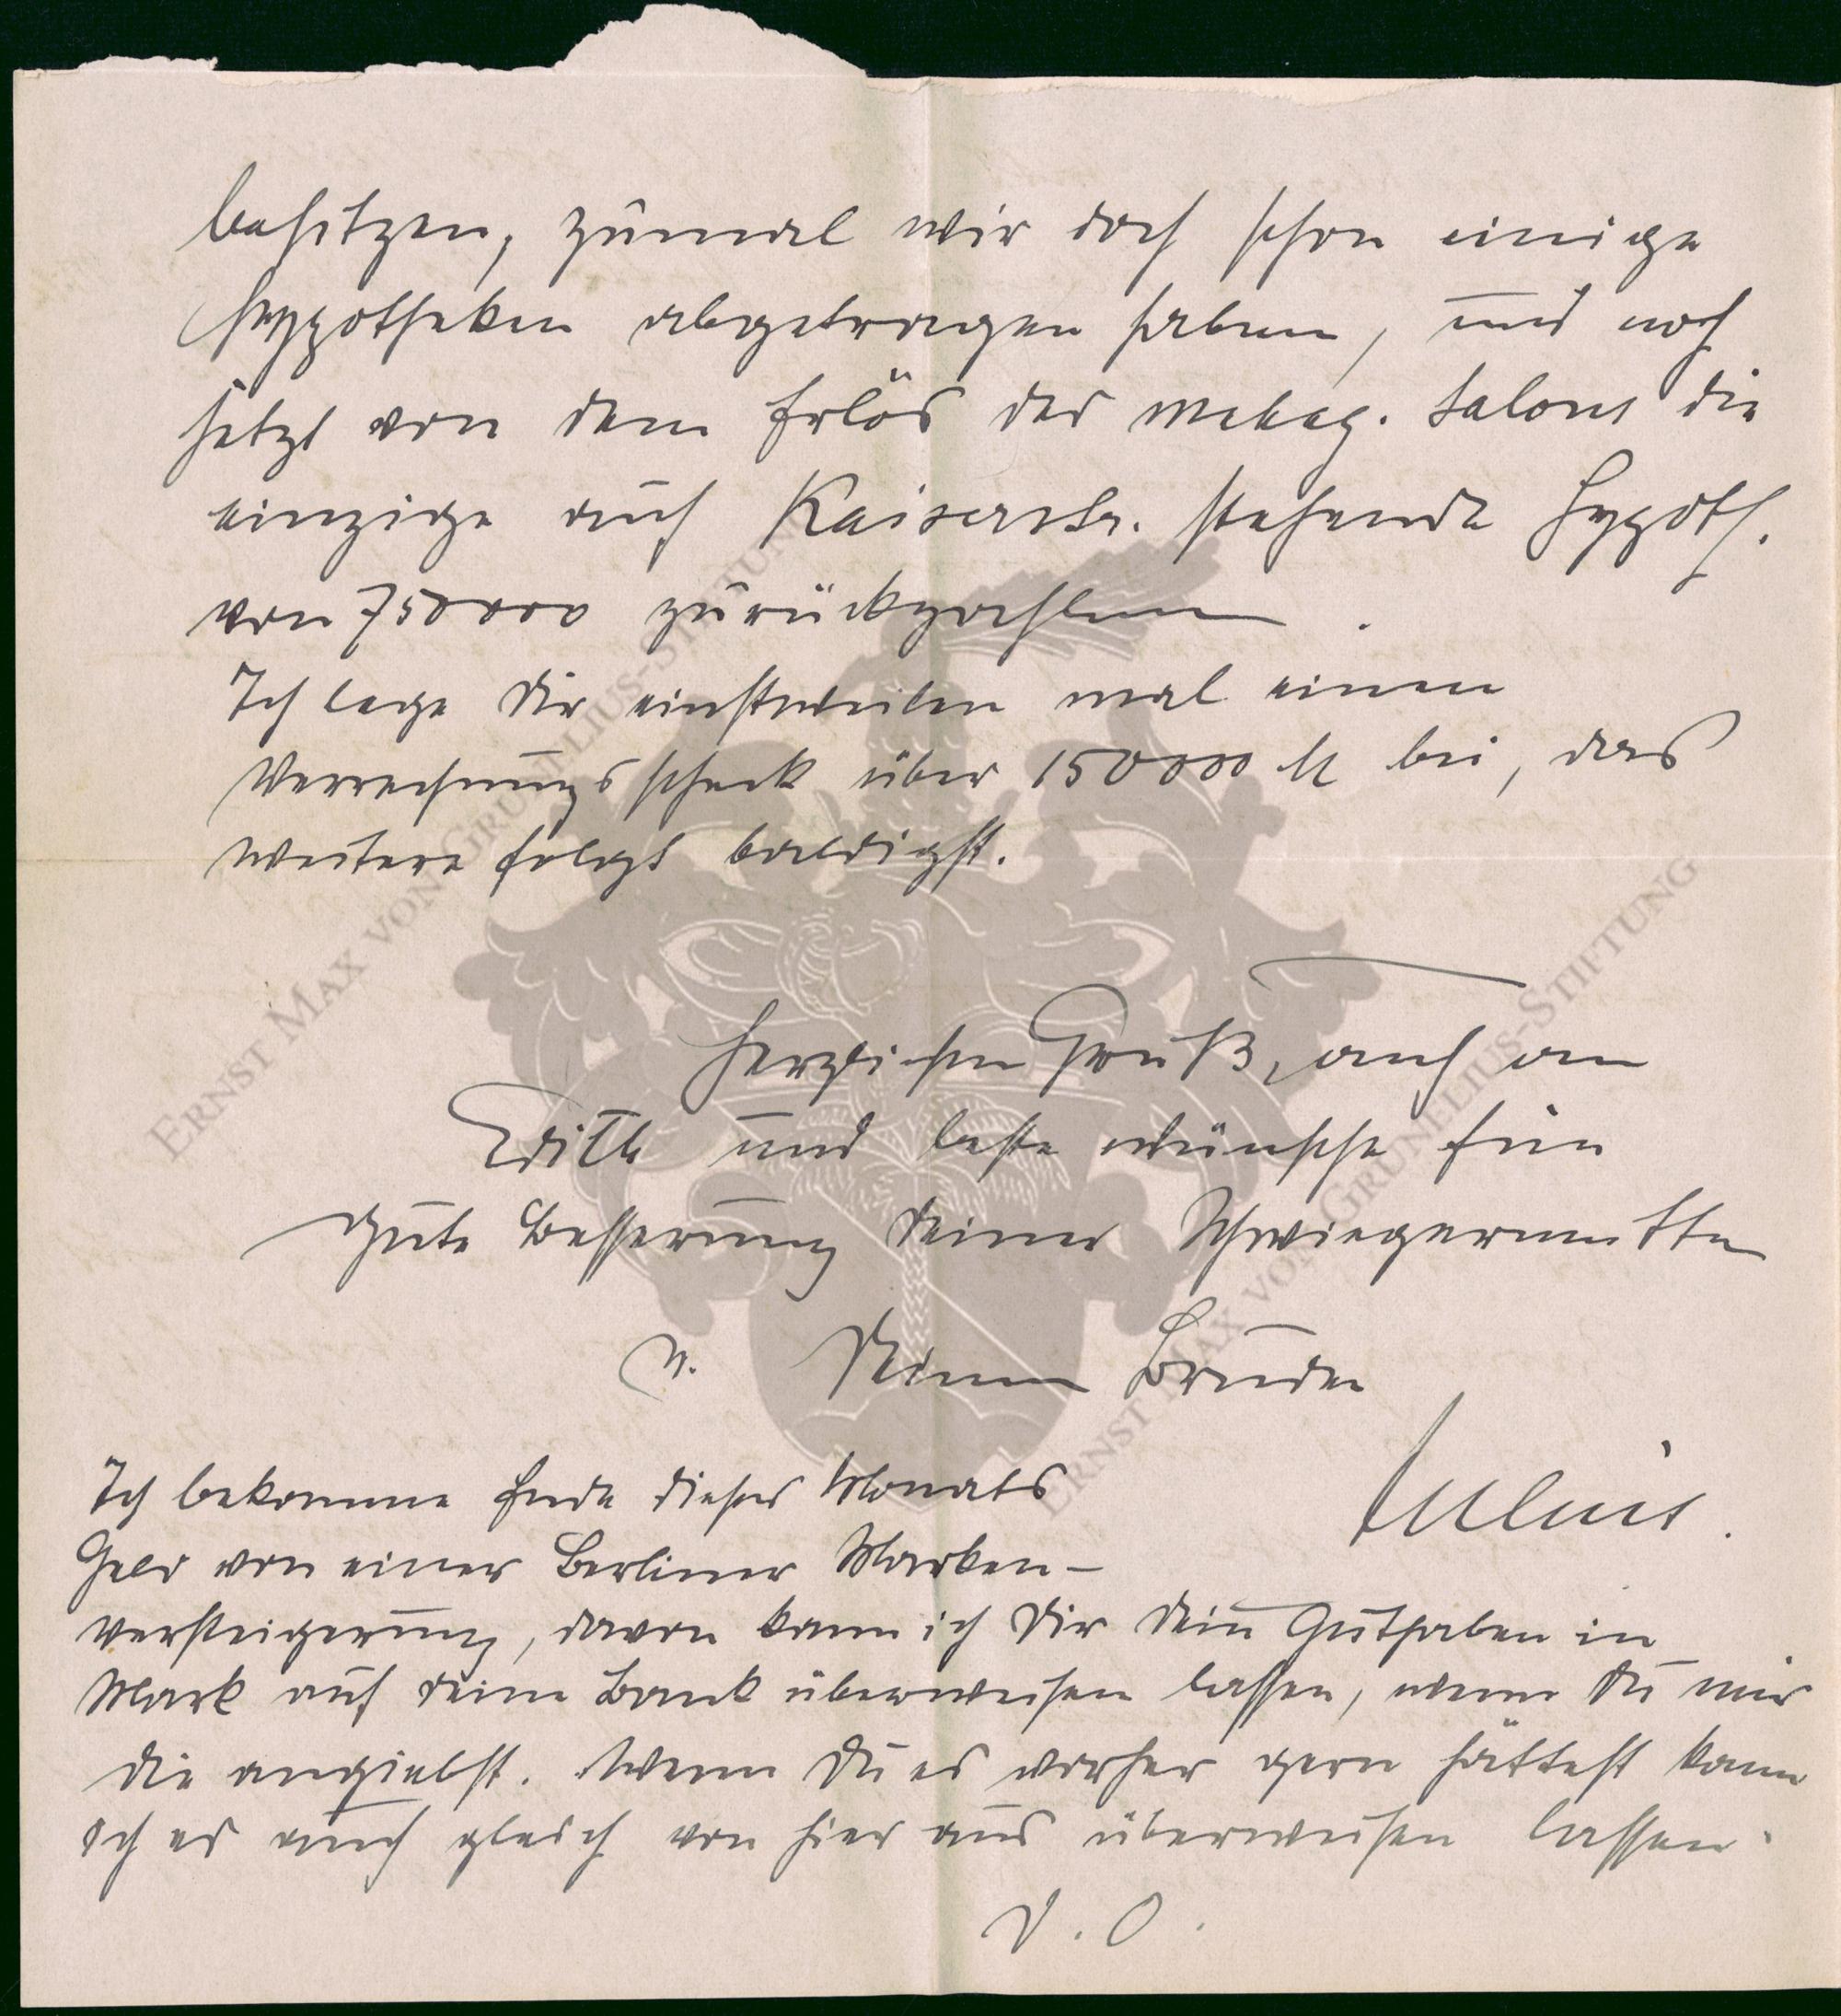 besitzen, zumal wir doch schon einige
Hypotheken abgetragen haben, und noch
jetzt von dem Erlös des Mahag. Salons die
einzige auf Kaiserstr. stehende Hypoth.
von 750000 zurückzahlen.
Ich lege Dir einstweilen mal einen
Verrechnungsscheck über 150000 M bei, das
weitere folgt baldigst.
Herzlichen Gruß, auch an
Edith und beste Wünsche für
gute Besserung Deiner Schwiegermutter
v. Deinem Bruder
Julius.
Ich bekomme Ende dieses Monats
Geld von einer Berliner Marken-
versteigerung, davon kann ich Dir Dein Guthaben in
Mark auf deine Bank überweisen lassen, wenn Du mir
die angiebst. Wenn Du es vorher gern hättest kann
ich es auch gleich von hier aus überweisen lassen.
D. O.
ERNST MAX VON GRUNELIUS-STIFTUNG
ERNST MAX VON GRUNELIUS-STIFTUNG